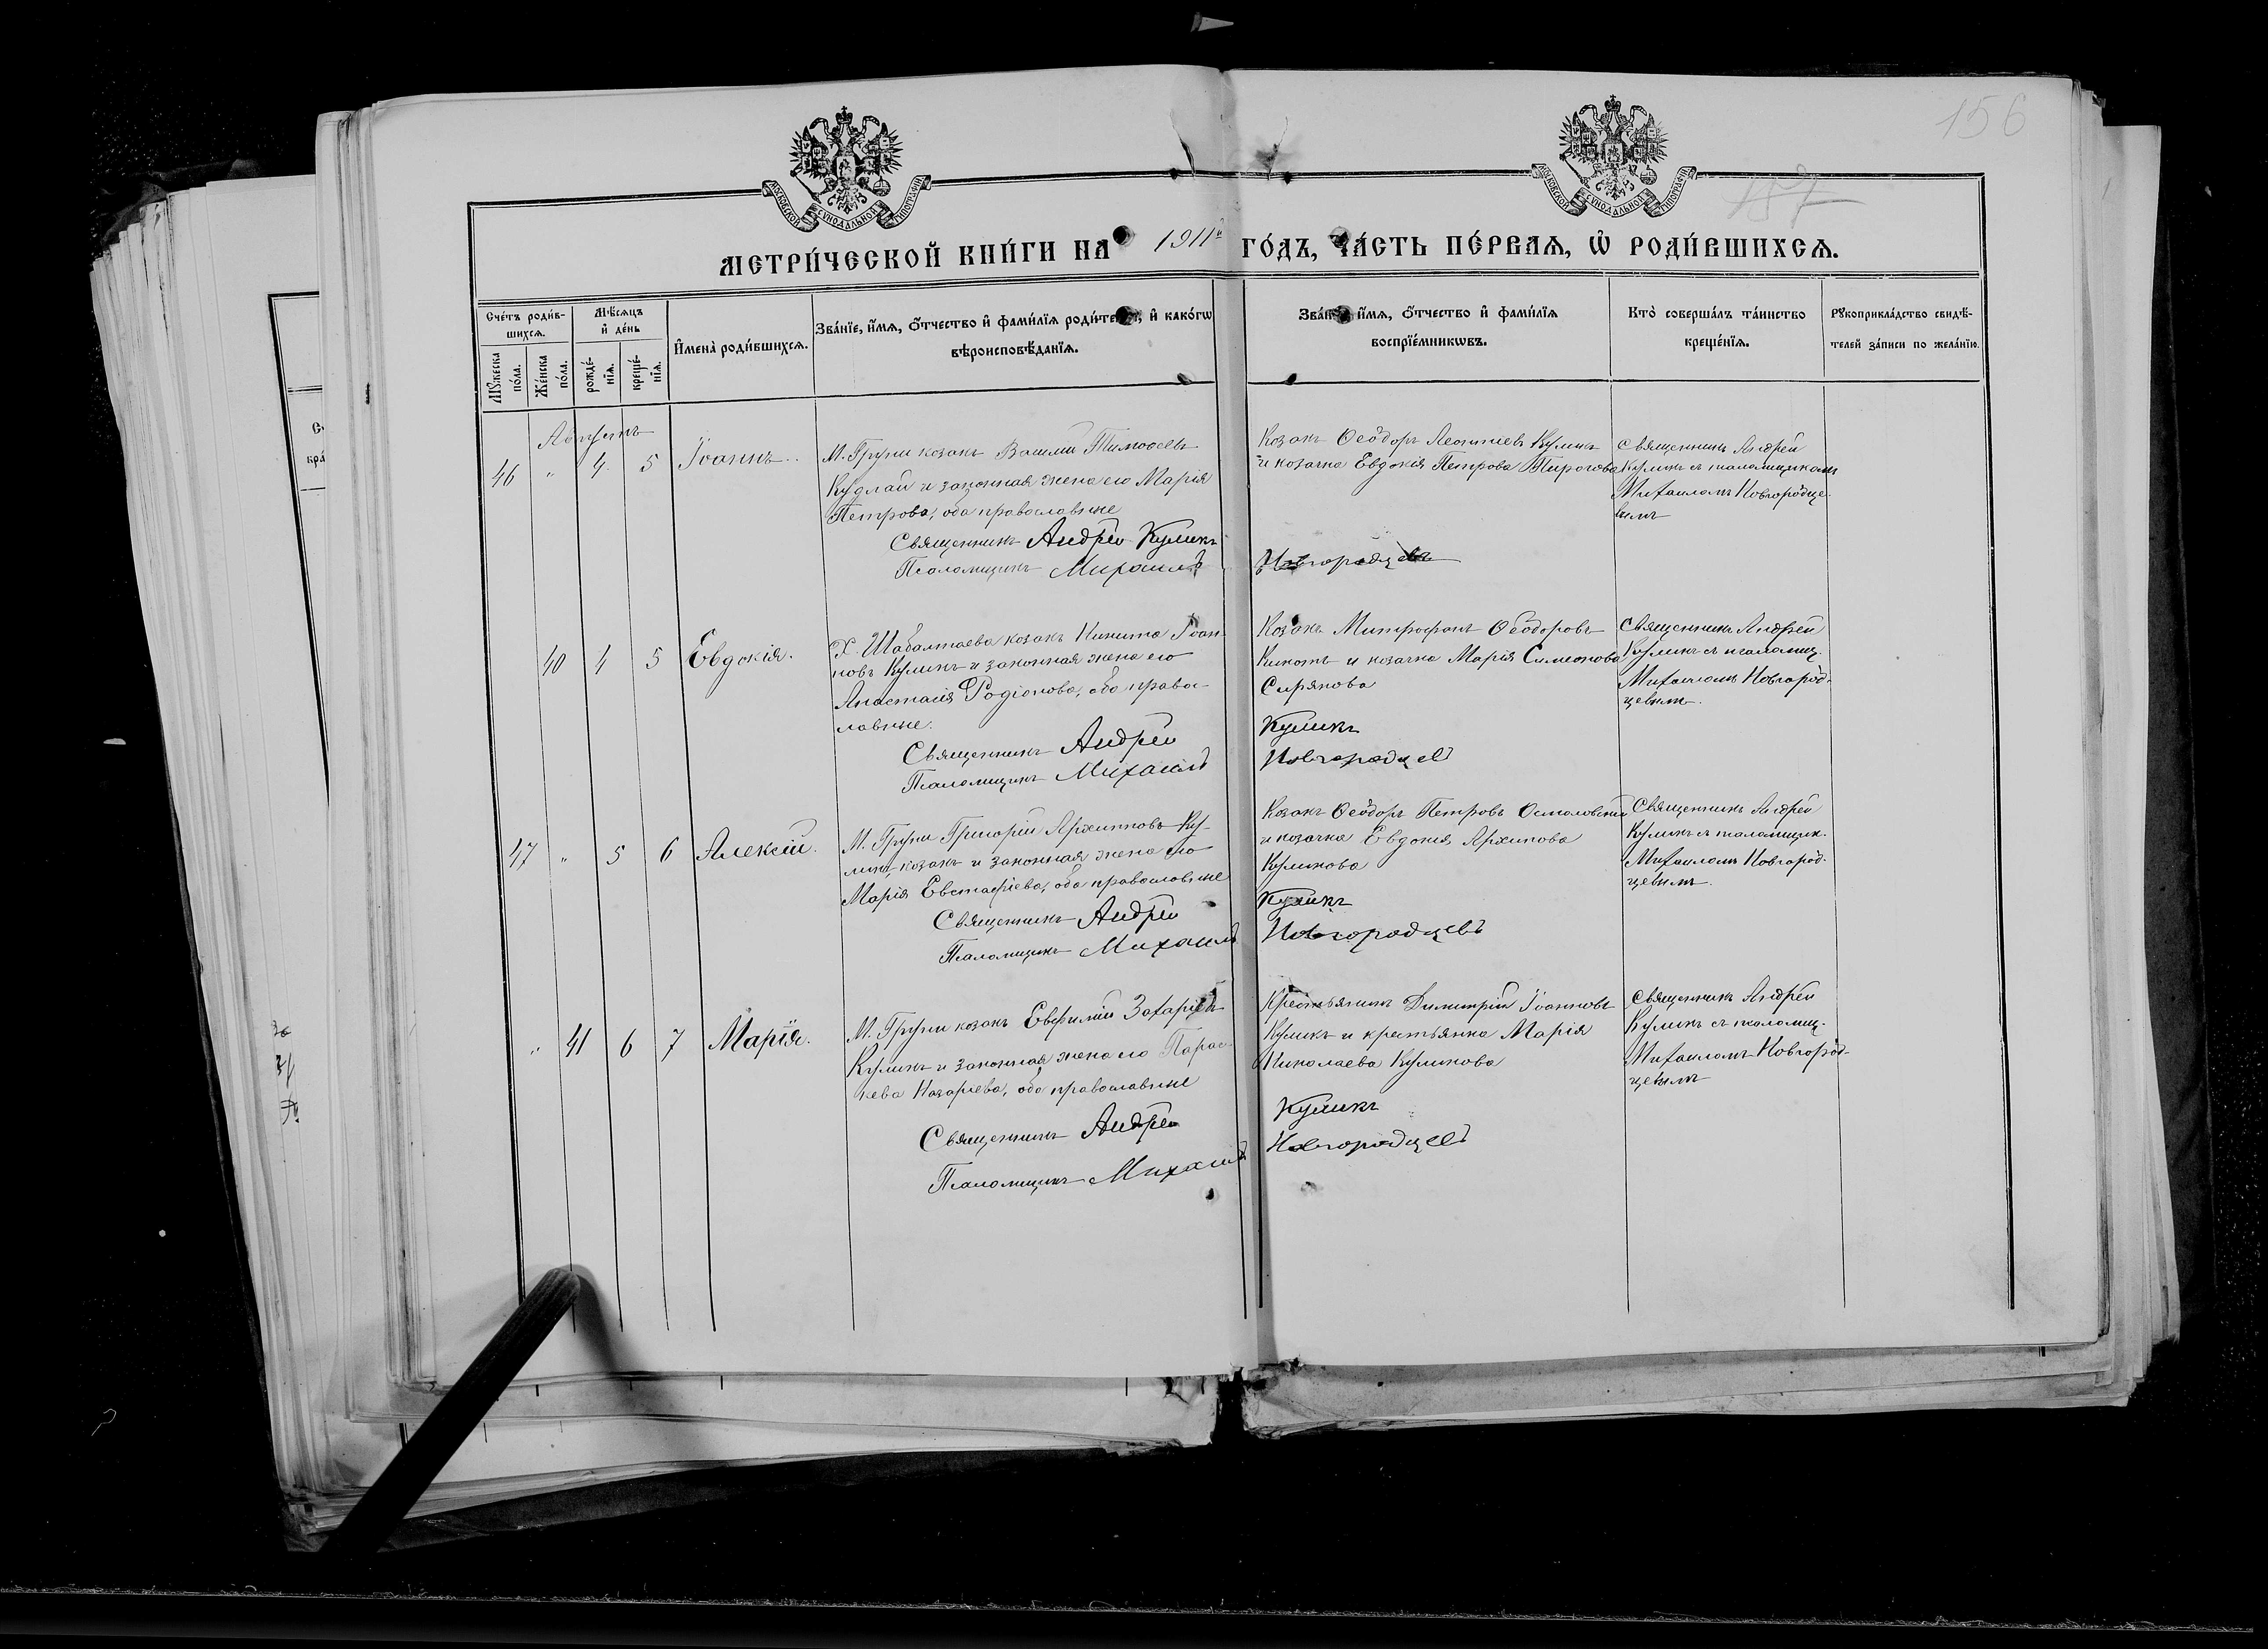 156
157
МОСКОВСКОЙ СѴНОДАЛЬНОЙ ТИПОГРАФІИ
МОСКОВСКОЙ СѴНОДАЛЬНОЙ ТИПОГРАФІИ
МЕТРИ́ЧЕСКОЙ КНИ́ГИ НА 1911й ГО́ДЪ, ЧА́СТЬ ПЕ́РВАѦ, Ѿ РОДИ́ВШИХСѦ.
Сче́тъ роди́в-
шихсѧ.
Мꙋ́жеска по́ла.
Же́нска по́ла.
Мѣ́сѧцъ
и҆ де́нь
рожде́-
нїѧ.
креще́-
нїѧ.
И҆мена̀ роди́вшихсѧ.
Зва́нїе, и҆́мѧ, ѻ҆́тчество и҆ фами́лїѧ роди́телей, и҆ како́гѡ
вѣроисповѣ́данїѧ.
Зва́нїе, и҆́мѧ, ѻ҆́тчество и҆ фами́лїѧ
воспрїе́мникѡвъ.
Кто̀ соверша́лъ та́инство
креще́нїѧ.
Рꙋкоприкла́дство свидѣ́-
телей за́писи по жела́нїю.
Августъ
46 " 4. 5 Іоаннъ.
М. Груни козакъ Василій Тимоѳеевъ
Кудлай и законная жена его Марія
Петрова, оба православные
Священникъ Андрей Куликъ
Псаломщикъ Михаилъ Новгородцевъ
Козакъ Ѳеодоръ Леонтіевъ Куликъ
и козачка Евдокія Петрова Пирогова
Священникъ Андрей
Куликъ съ псаломщикомъ
Михаиломъ Новгородце-
вымъ
40 4 5 Евдокія.
Х. Шабалтаева козакъ Никита Іоан-
новъ Куликъ и законная жена его
Анастасія Родіонова, оба право-
славные.
Священникъ Андрей Куликъ
Псаломщикъ Михаилъ Новгородцевъ
Козакъ Митрофанъ Ѳеодоровъ
и козачка Марія Симеонова
Сирякова
Священникъ Андрей
Куликъ съ псаломщ.
Михаиломъ Новгород-
цевымъ.
47 " 5 6 Алексій.
М. Груни Григорій Архиповъ Ку-
ликъ, козакъ и законная жена его
Марія Евстафіева, оба православные
Священникъ Андрей Куликъ
Псаломщикъ Михаилъ Новгородцевъ
Козакъ Ѳеодоръ Петровъ Осмоловскій
и козачка Евдокія Архипова
Куликова
Священникъ Андрей
Куликъ съ псаломщик.
Михаиломъ Новгород-
цевымъ.
" 41 6 7 Марія.
М. Груни козакъ Евфимій Захаріевъ
Куликъ и законная жена его Парас-
кева Назаріева, оба православные
Священникъ Андрей Куликъ
Псаломщикъ Михаилъ Новгородцевъ
Крестьянинъ Димитрій Іоанновъ
Куликъ и крестьянка Марія
Николаева Куликова
Священникъ Андрей
Куликъ съ псаломщ.
Михаиломъ Новгород-
цевымъ